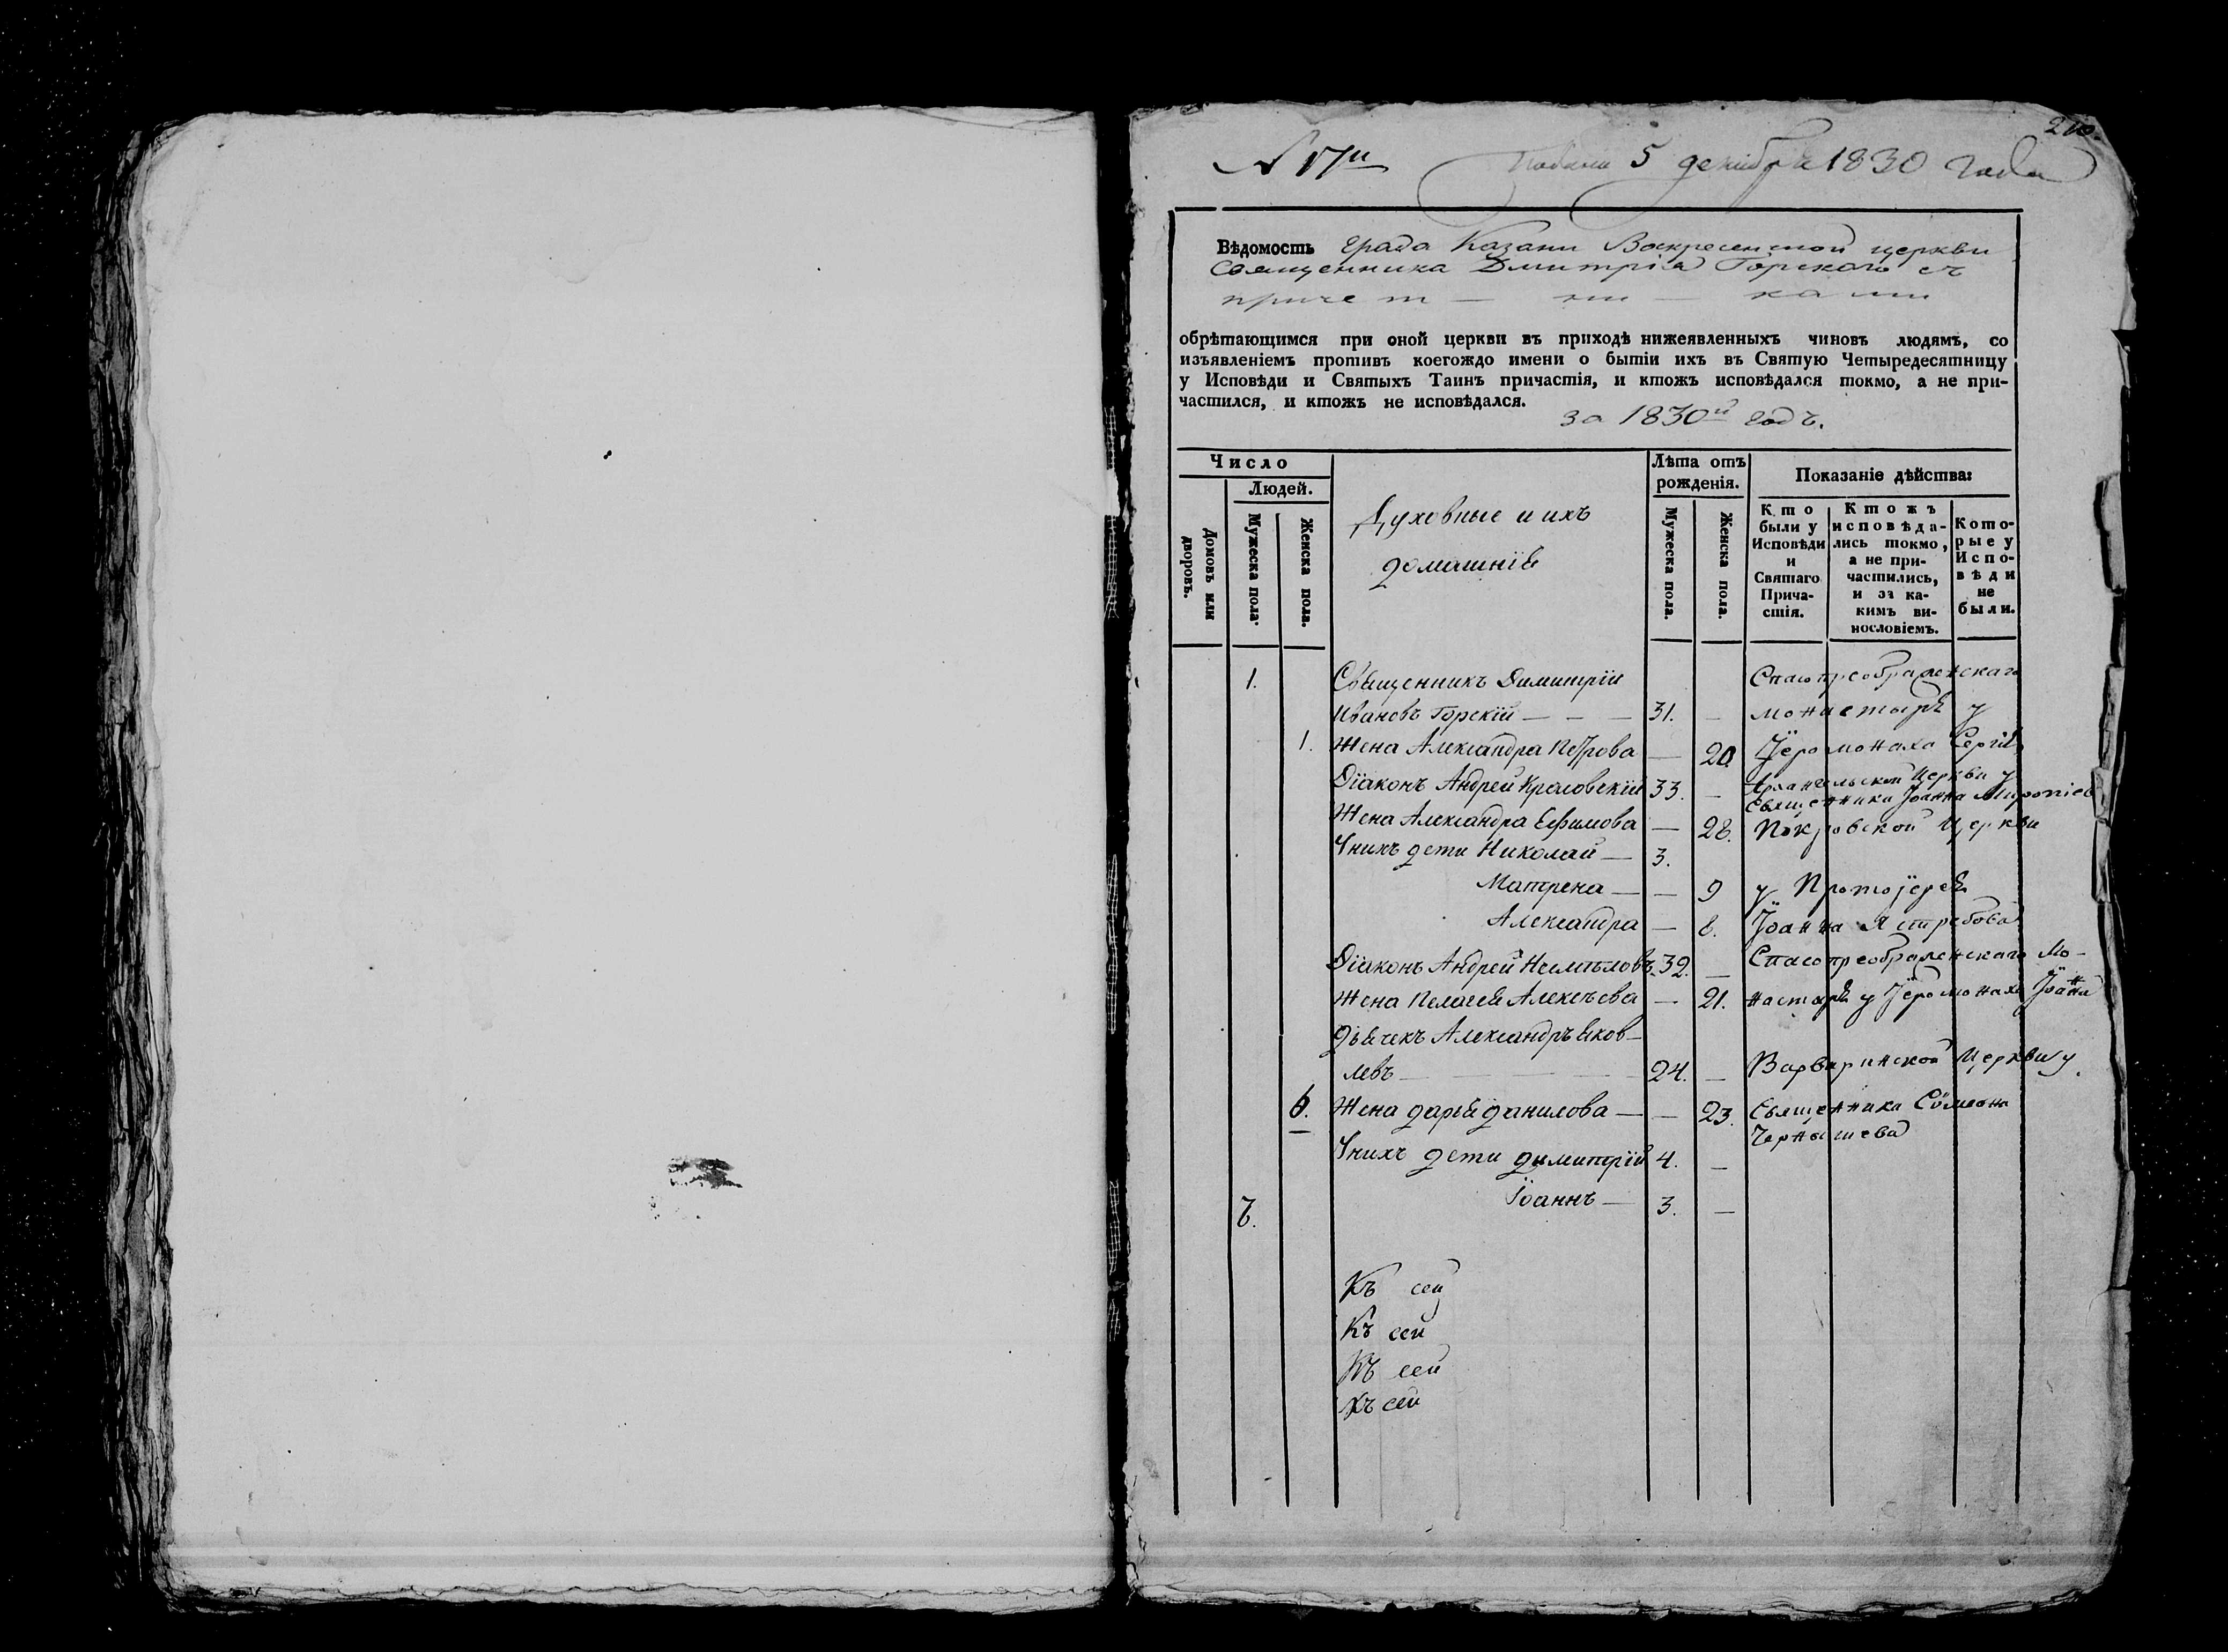 210.
№ 17й Подана 5 декабря 1830 года
Вѣдомость Града Казани Воскресенской церкви
Священника Дмитрія Горскаго съ
причет — ни — ками
обрѣтающимся при оной церкви въ приходѣ нижеявленныхъ чиновъ людямъ, со
изъявленіемъ противъ коегождо имени о бытіи ихъ въ Святую Четыредесятницу
у Исповѣди и Святыхъ Таинъ причастія, и ктожъ исповѣдался токмо, а не при-
частился, и ктожъ не исповѣдался.
за 1830й годъ.
Число
Людей.
Домовъ или дворовъ.
Мужеска пола.
Женска пола.
Духовные и ихъ
домашнія
Лѣта отъ
рожденія.
Мужеска пола.
Женска пола.
Показаніе дѣйства:
Кто
были у
Исповѣди
и
Святаго
Прича-
стія.
Ктожъ
исповѣда-
лись токмо,
а не при-
частились,
и за ка-
кимъ ви-
нословіемъ.
Кото-
рые у
Испо-
вѣди
не
были.
1. Священникъ Димитрій Спасопреображенскаго
Ивановъ Горскій — — — 31. — монастыря у
1. Жена Александра Петрова — 20. Іеромонаха Сергія
Діаконъ Андрей 33. — Архангельской Церкви у
Священника Іоанна
Жена Александра Ефимова — 28. Покровской Церкви
У нихъ дети Николай — 3.
Матрена — — 9 у Протоіерея
Александра — 8. Іоанна Ястребова
Діаконъ Андрей Несмѣловъ. 32. — Спасопреображенскаго Мо-
Жена Пелагея Алексѣева — 21. настыря у Іеромонаха Іоанна
Дьячекъ Александръ Яков-
левъ — 24. — Варваринской Церкви у
6. Жена Дарья Данилова — — 23. Священника Сѵмеона
Чернышева
У нихъ дети Димитрій 4. —
7. Іоаннъ — 3. —
Къ сей
Къ сей
Къ сей
Къ сей